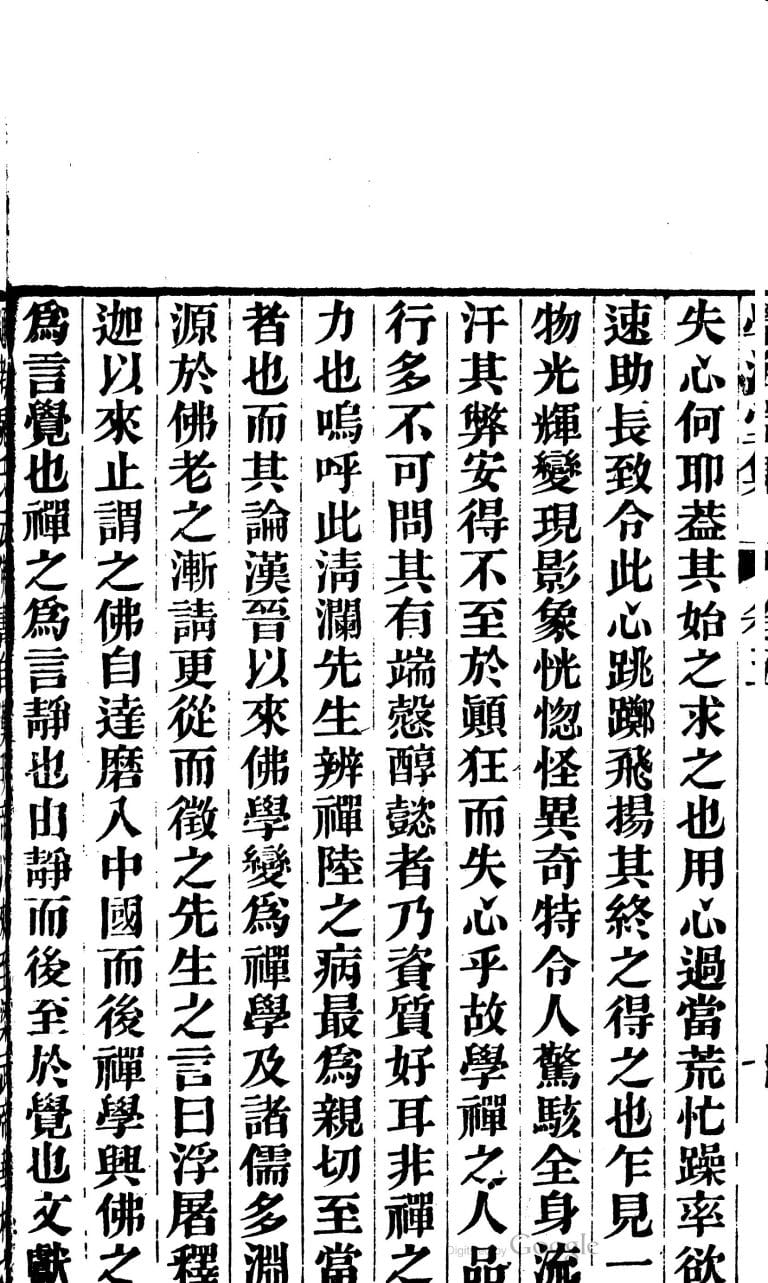 失心何耶葢其始之求之也用心過當荒忙躁率欲
速助長致令此心跳躑飛揚其終之得之也乍見一
物光輝變現影象恍惚怪異奇特令人驚駭全身流
汗其弊安得不至於顚狂而失心乎故學禪之人品
行多不可問其有端慤醇懿者乃資質好耳非禪之
力也嗚呼此淸瀾先生辨禪陸之病最爲親切至當
者也而其論漢晉以來佛學變爲禪學及諸儒多淵
源於佛老之漸請更從而徵之先生之言曰浮屠釋
迦以來止謂之佛自達磨入中國而後禪學興佛之
爲言覺也禪之爲言靜也由靜而後至於覺也文獻
Digitized by Google